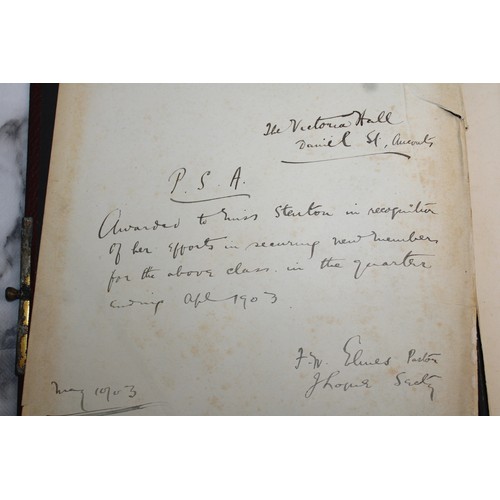 The Victoria Hall
Daniel St, Ancoats
P. S. A.
Awarded to Miss Stenton in recognition
of her efforts in securing new members
for the above class. in the quarter
ending Apl 1903
F. W. Elmes Pastor
Secty
May 1903